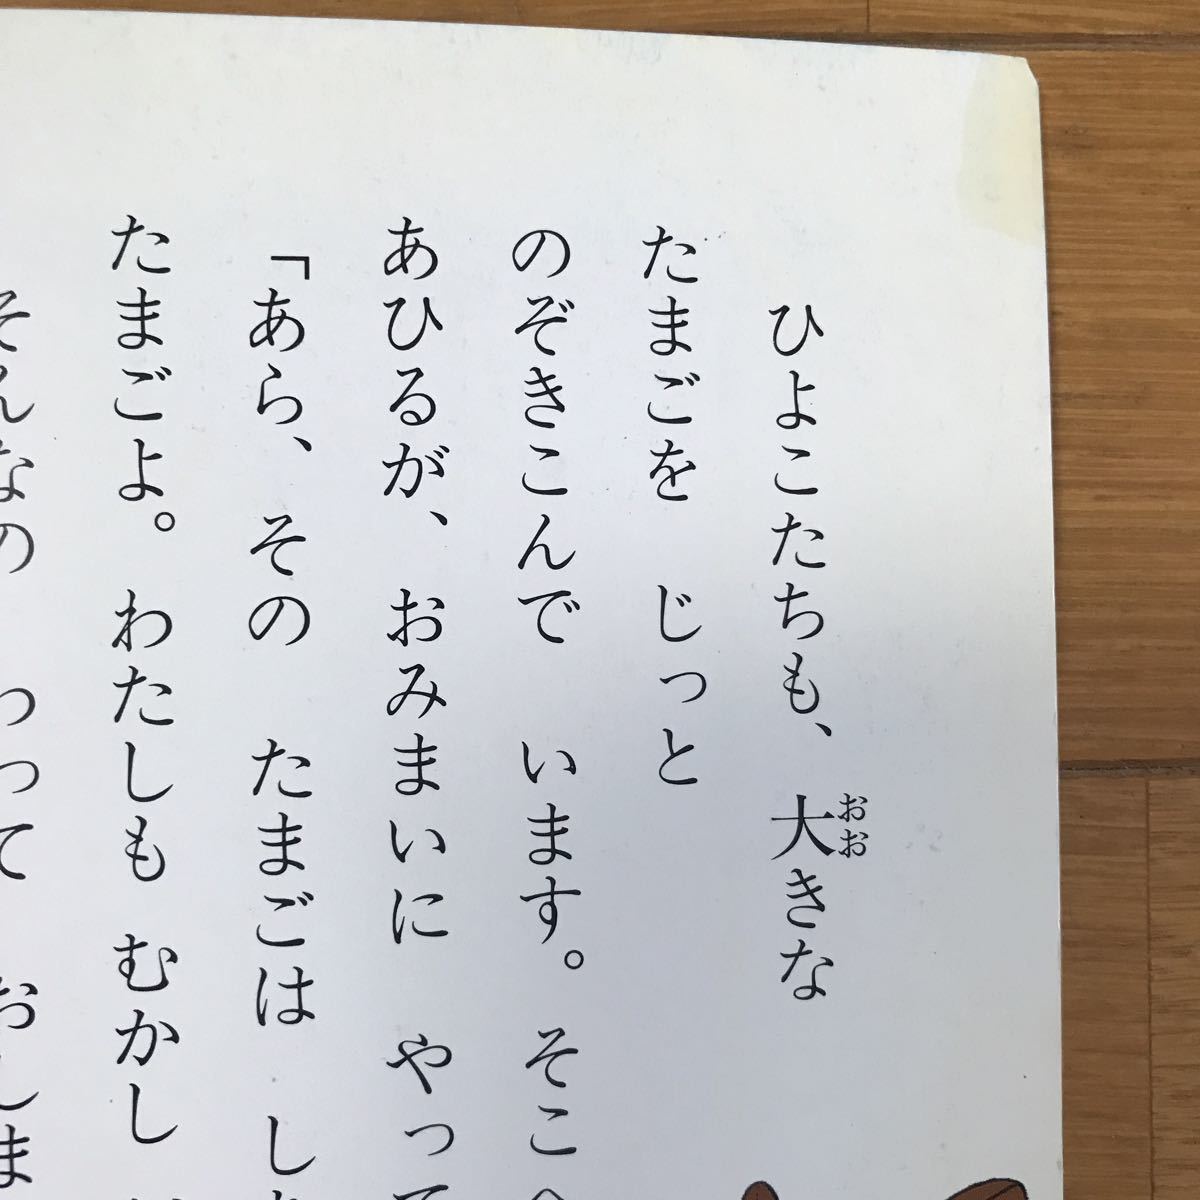 ひよこたちも、大きな
おお
たまごを じっと
のぞきこんで います。そこへ
あひるが、おみまいに やって
「あら、その たまごは し
たまごよ。わたしも むかし
そんなの わって おしま